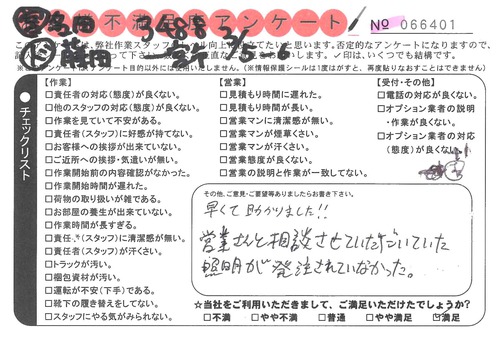 不満足度アンケート
№ 066401
※本アンケートは アンケート目的以外には使用いたしません。(※情報保護シールは1度はがすと、再度貼りなおすことはできません)
●チェックリスト
【作業】
□責任者の対応(態度)が良くない。
□他のスタッフの対応(態度)が良くない。
□作業を見ていて不安がある。
□責任者(スタッフ)に好感が持てない。
□お客様への挨拶が出来ていない。
□ご近所への挨拶・気遣いが無い。
□作業開始前の内容確認がなかった。
□作業開始時間が遅れた。
□荷物の取り扱いが雑である。
□お部屋の養生が出来ていない。
□作業時間が長すぎる。
□責任者(スタッフ)に清潔感が無い。
□責任者(スタッフ)が汗くさい。
□トラックが汚い。
□梱包資材が汚い。
□運転が不安(下手)である。
□靴下の履き替えをしてない。
□スタッフにやる気がみられない。
【営業】
□見積もり時間に遅れた。
□見積もり時間が長い。
□営業マンに清潔感が無い。
□営業マンが煙草くさい。
□営業マンが汗くさい。
□営業態度が良くない。
□営業の説明と作業が一致してない。
【受付・その他】
□電話の対応が良くない。
□オプション業者の説明
・作業が良くない。
□オプション業者の対応
(態度)が良くない。
その他、ご意見・ご要望等ありましたらお書き下さい。
早くて助かりました!!
営業さんと相談させていただいていた
照明が発注されていなかった。
☆当社をご利用いただきまして、ご満足いただけたでしょうか?
□不満 □やや不満 □普通 □やや満足 ☑満足